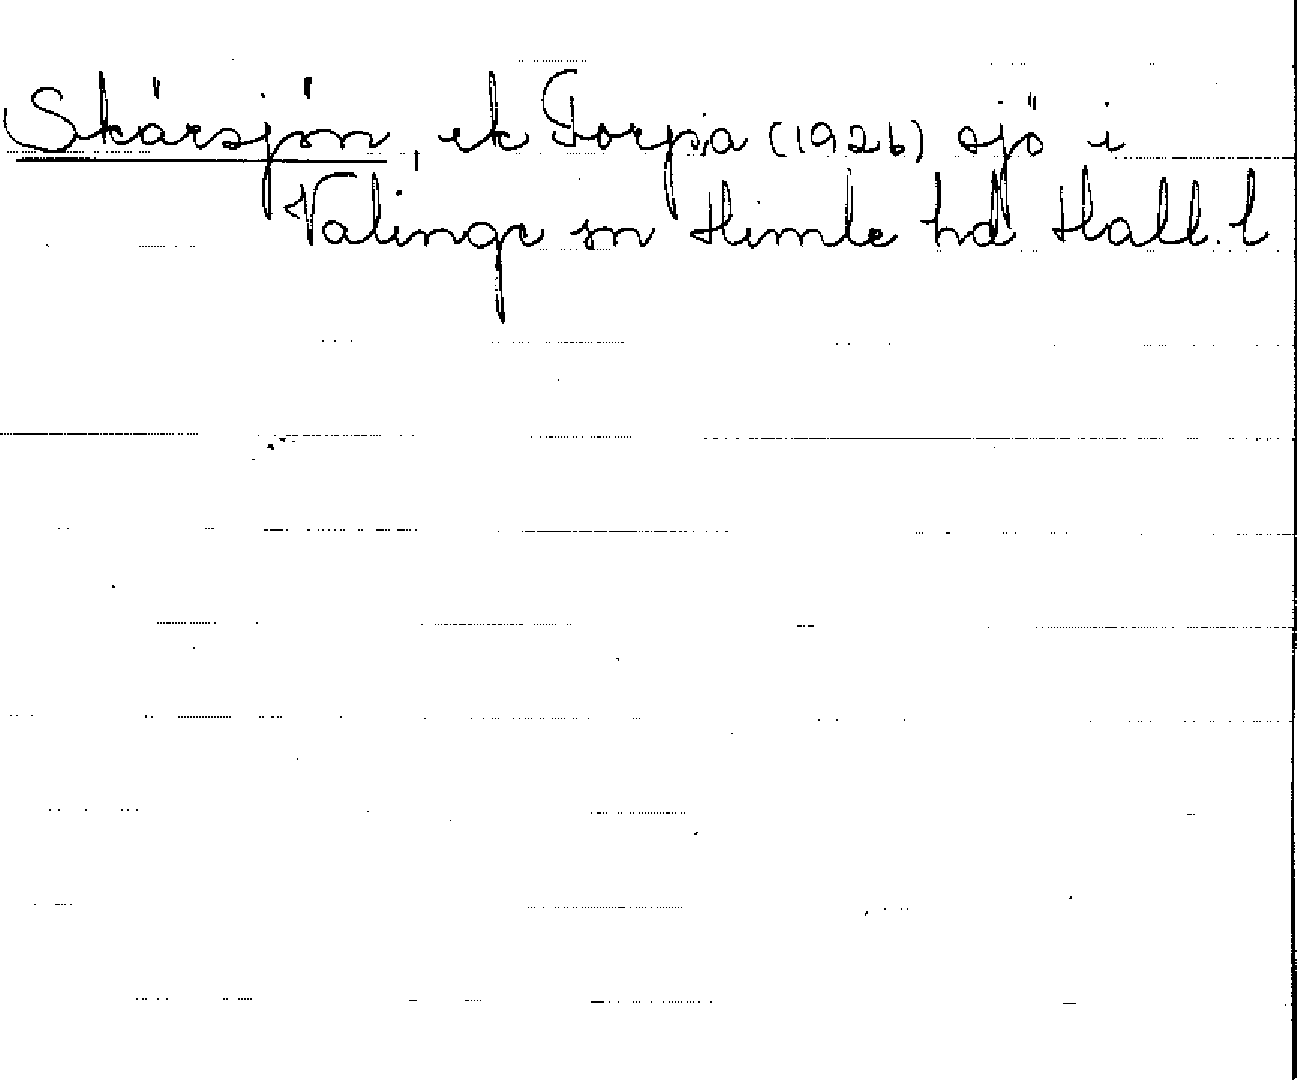 Skärsjön, ek Torpa (1926) sjö i
Valinge sn Himle hd Hall. l